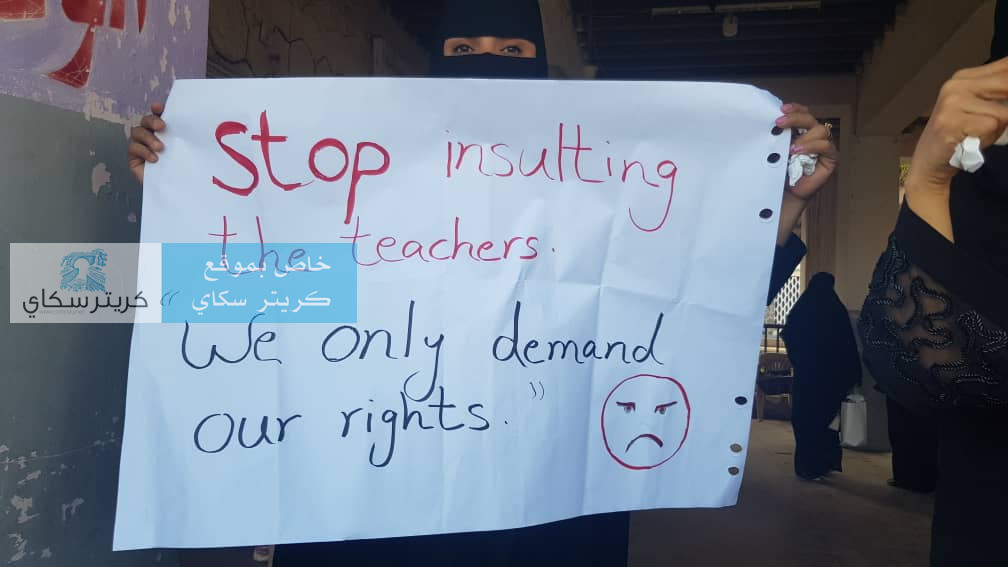 Stop insulting
the teachers.
“We only demand
our rights.”
خاص بموقع
كريتر سكاي
كريتر سكاي